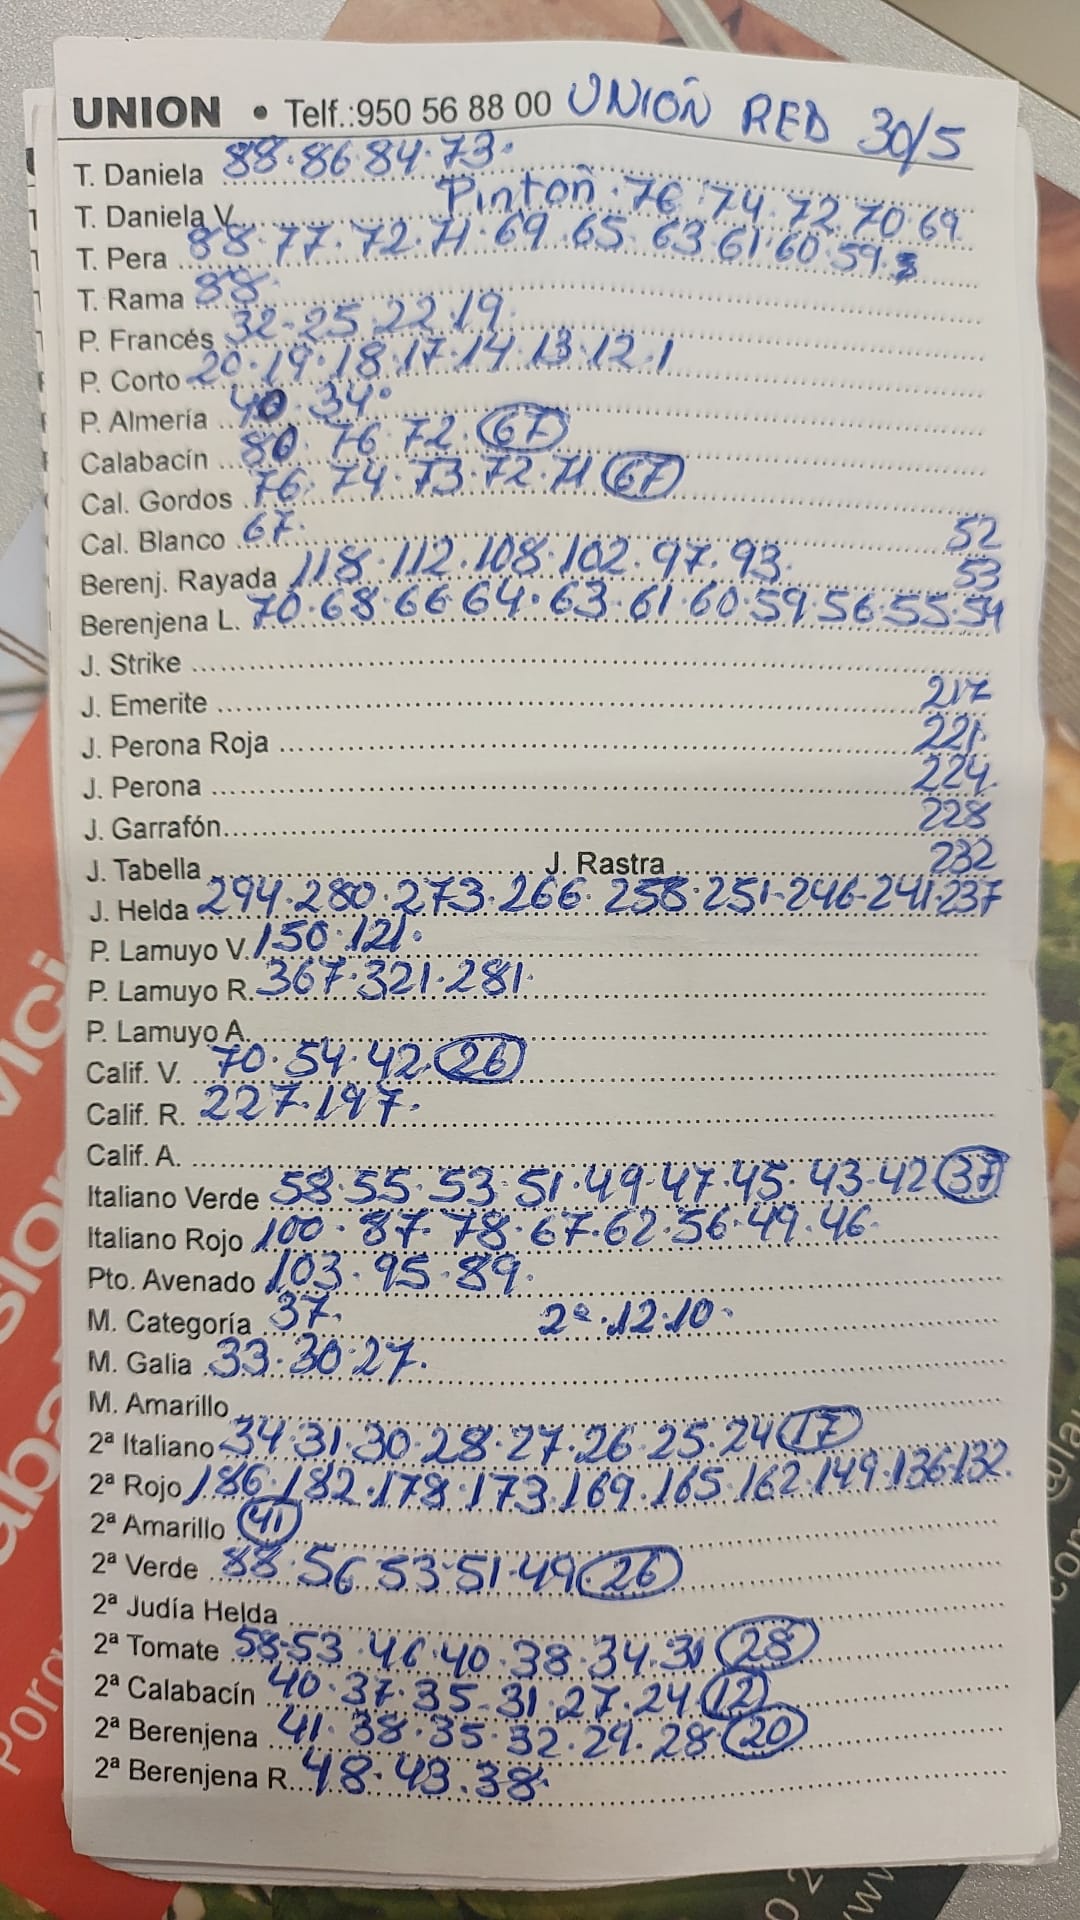 UNION • Telf.:950 56 88 00 UNION RED 30/5
T. Daniela 88.86.84.73.
T. Daniela V. Pinton .76.74.72.70.69
T. Pera 88.77.72.71.69.65.63.61.60.59.
T. Rama 88.
P. Francés 32-25.22.19.
P. Corto 20.19.18.17.14.13.12.1
P. Almería 40.34.
Calabacín 80.76.72.67
Cal. Gordos 76.74.73.72.71 67
Cal. Blanco 67. 52
Berenj. Rayada 118.112.108.102.97.93. 53
Berenjena L. 70.68.66.64.63.61.60.59.56.55.54
J. Strike
J. Emerite 217
J. Perona Roja 221.
J. Perona 224.
J. Garrafón 228
J. Tabella J. Rastra 232
J. Helda 294.280.273.266.258.251-246-241.237
P. Lamuyo V. 150.121.
P. Lamuyo R. 367.321.281.
P. Lamuyo A.
Calif. V. 70.54.42.26
Calif. R. 227.197.
Calif. A.
Italiano Verde 58.55.53.51.49.47.45.43.42 37
Italiano Rojo 100.87.78.67.62.56.49.46.
Pto. Avenado 103.95.89.
M. Categoría 37. 2ª.12.10.
M. Galia 33.30.27.
M. Amarillo
2ª Italiano 34.31.30.28.27.26.25.24 17
2ª Rojo 186.182.178.173.169.165.162.149.136.132.
2ª Amarillo 41
2ª Verde 88.56.53.51.49.26
2ª Judía Helda
2ª Tomate 58-53.46.40.38.34.31 28
2ª Calabacín 40.37.35.31.27.24.12
2ª Berenjena 41.38.35.32.29.28 20
2ª Berenjena R. 48.43.38.